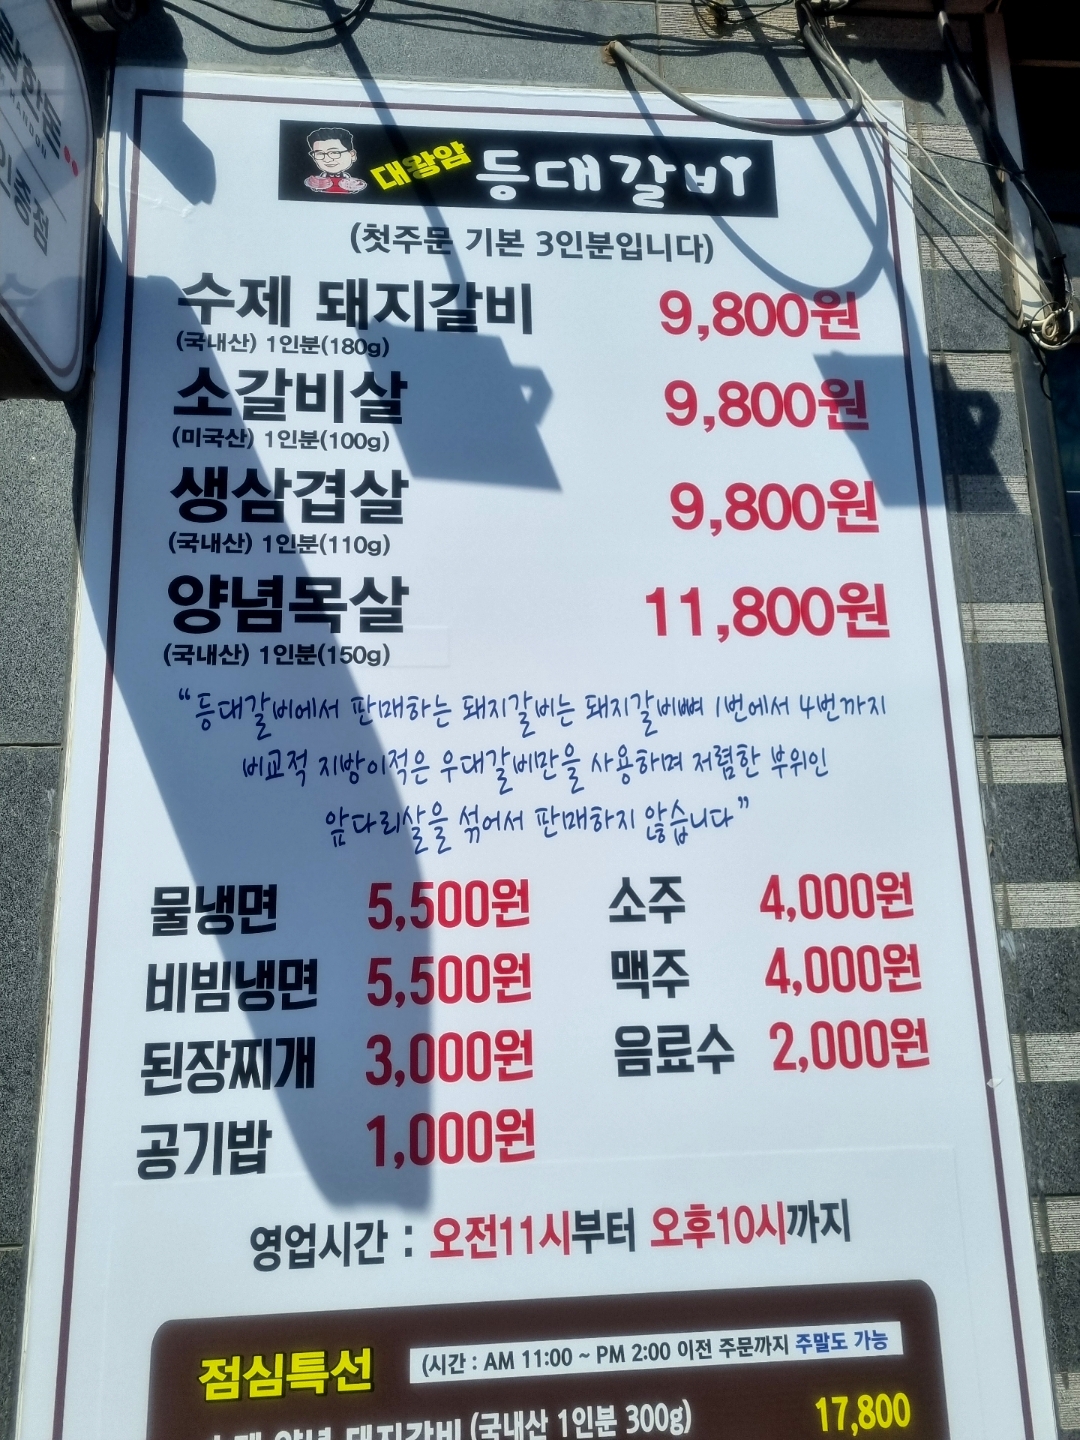 대왕암 등대갈비
(첫주문 기본 3인분입니다)
수제 돼지갈비 9,800원
(국내산) 1인분(180g)
소갈비살 9,800원
(미국산) 1인분(100g)
생삼겹살 9,800원
(국내산) 1인분(110g)
양념목살 11,800원
(국내산) 1인분(150g)
“등대갈비에서 판매하는 돼지갈비는 돼지갈비뼈 1번에서 4번까지
비교적 지방이적은 우대갈비만을 사용하며 저렴한 부위인
앞다리살을 섞어서 판매하지 않습니다”
물냉면 5,500원 소주 4,000원
비빔냉면 5,500원 맥주 4,000원
된장찌개 3,000원 음료수 2,000원
공기밥 1,000원
영업시간 : 오전11시부터 오후10시까지
점심특선 (시간 : AM 11:00 ~ PM 2:00 이전 주문까지 주말도 가능
수제 양념 돼지갈비 (국내산 1인분 300g) 17,800
한돈
HANDON
인증점